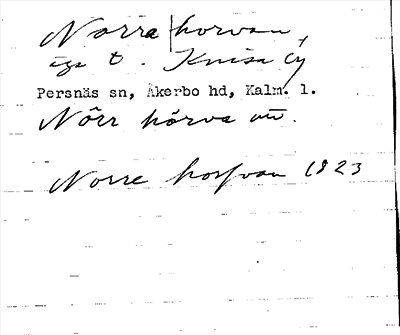 Norra horvan,
äga t. Knisa by
Persnäs sn, Åkerbo hd, Kalm. l.
Nörr hörva
Norre horfvan 1823